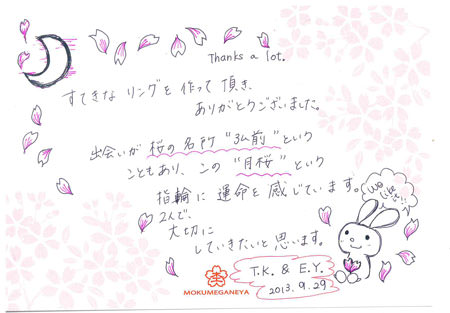 Thanks a lot.
すてきな リングを 作って 頂き、
ありがとうございました。
出会いが 桜の名所 "弘前" という
こともあり、この "月桜" という
指輪に 運命を 感じています。
2人で、
大切に
していきたいと 思います。
We
T.K. & E.Y.
2013.9.29
MOKUMEGANEYA